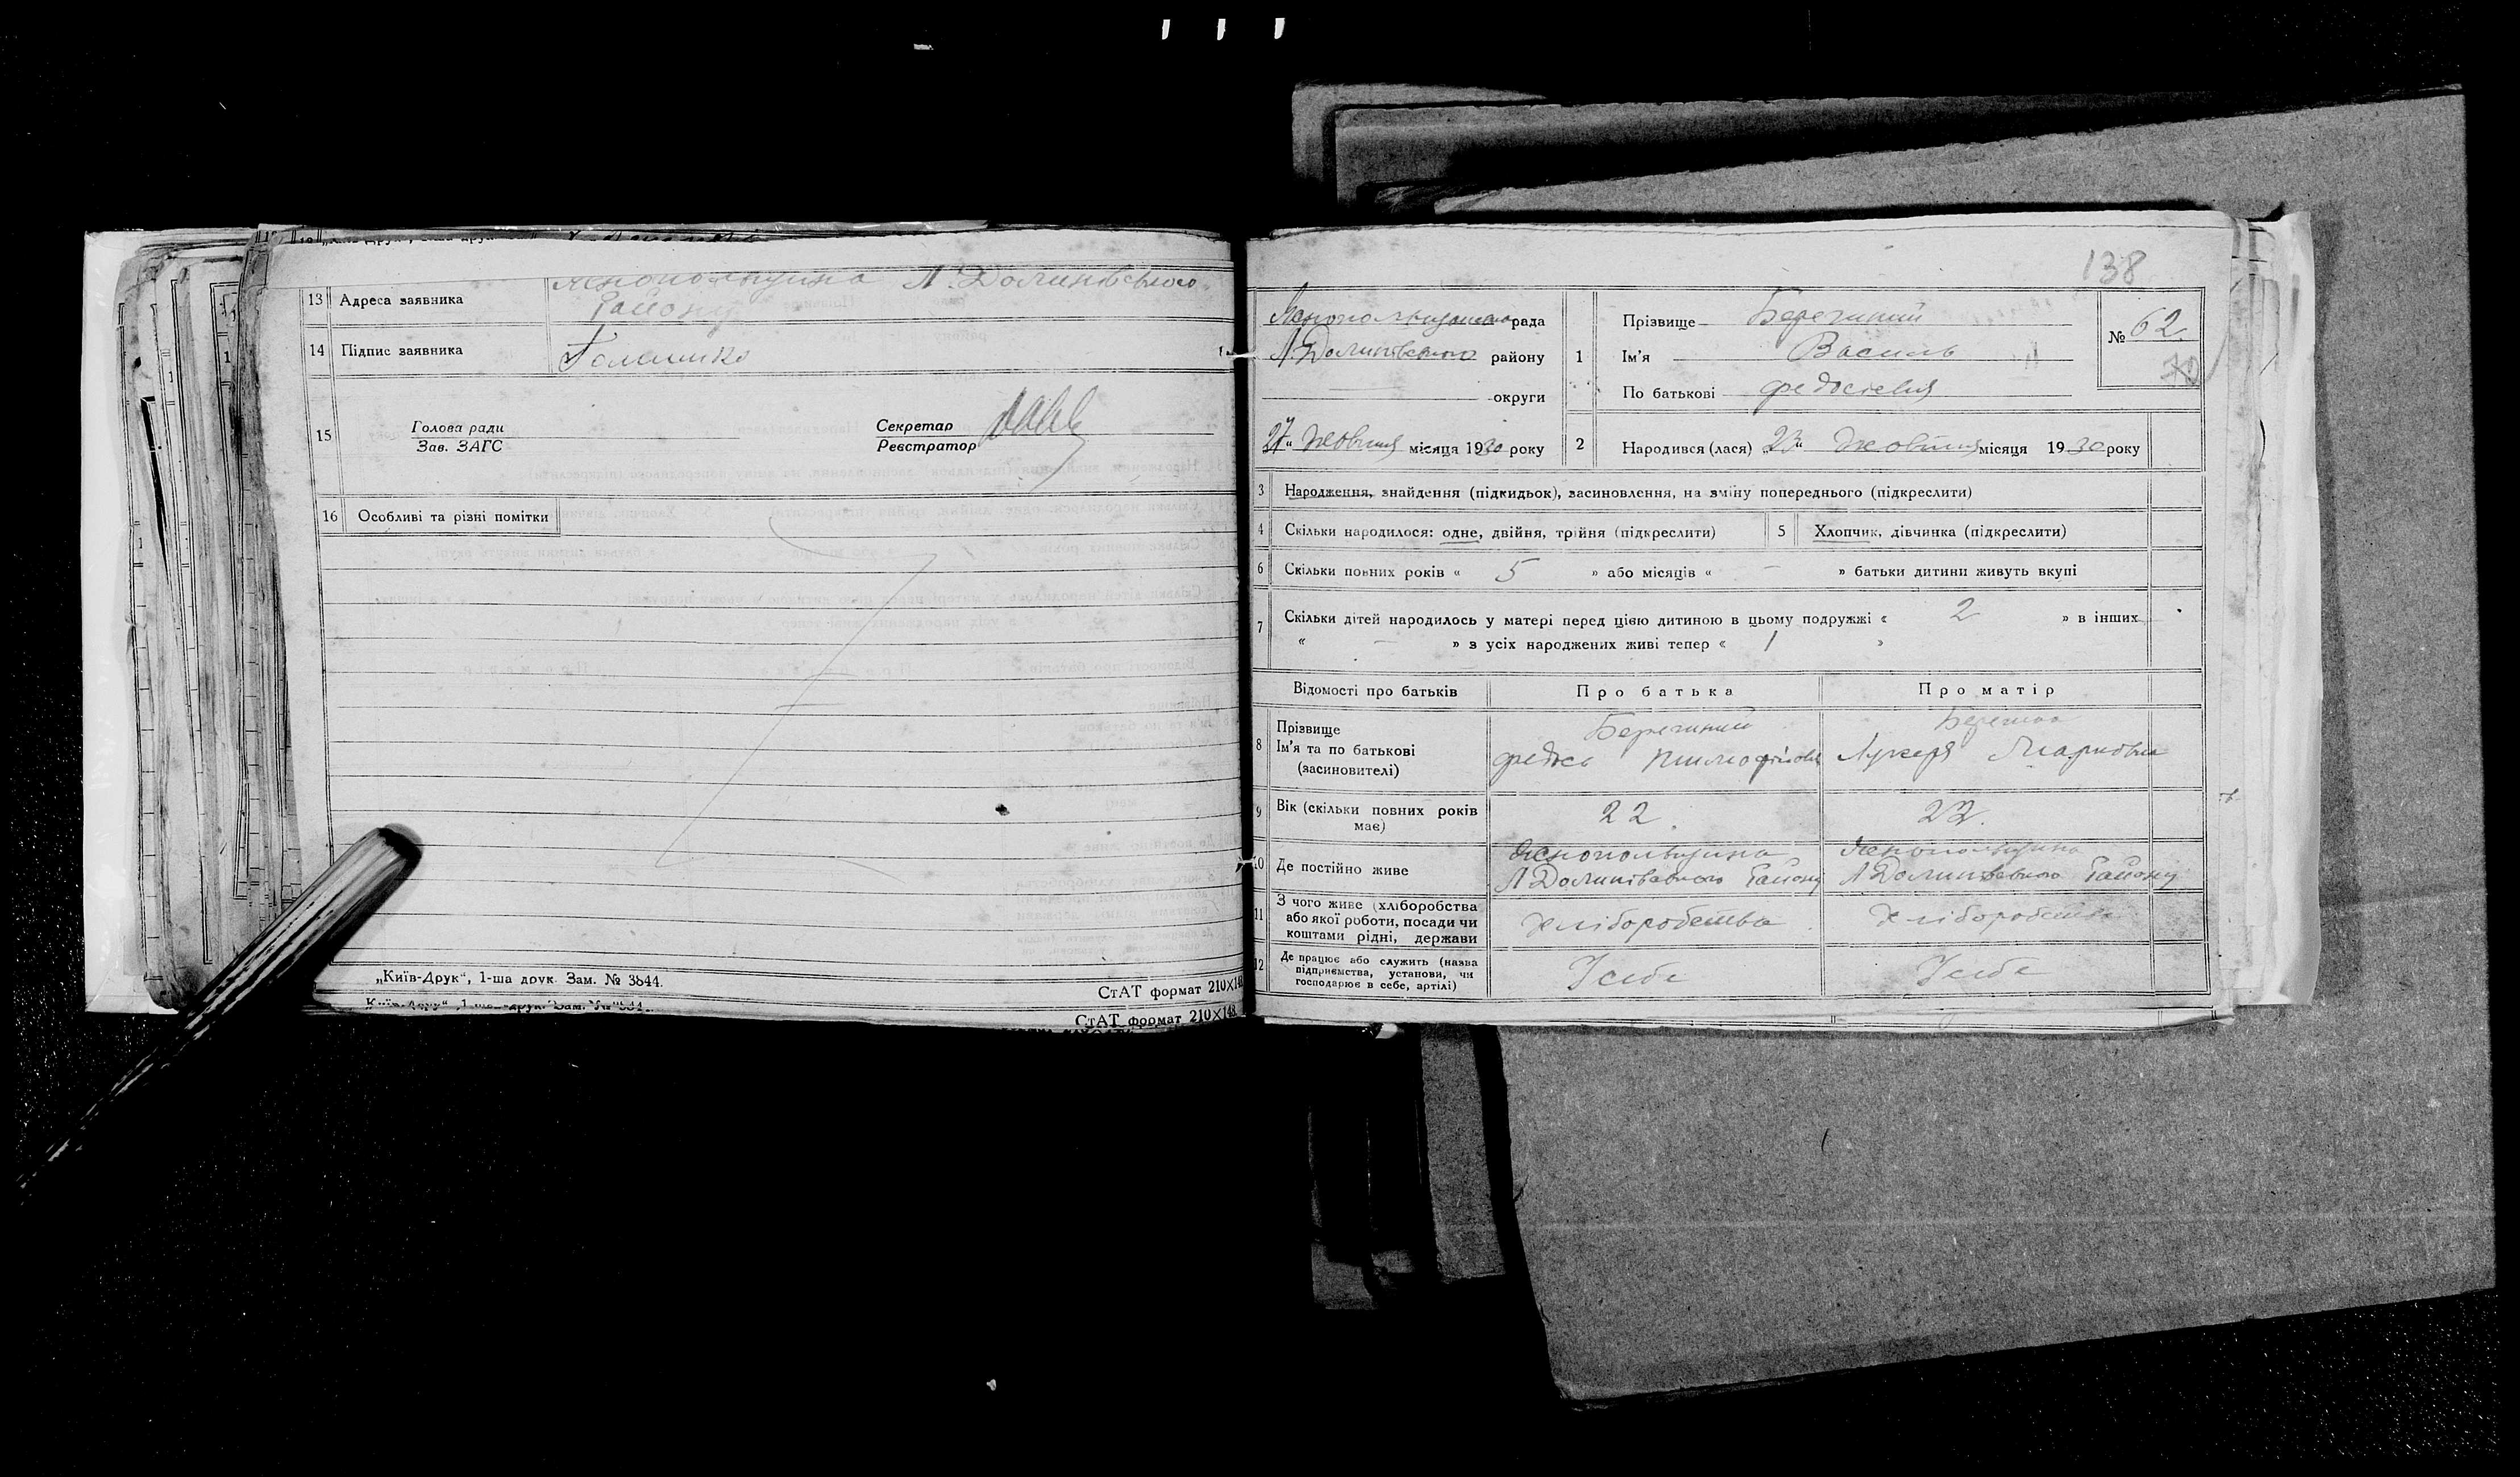 13 Адреса заявника
Яснопольщина Л. Долинівського
Району
14 Підпис заявника
15 Голова ради
Зав. ЗАГС
Секретар
Реєстратор
16 Особливі та різні помітки
„Київ-Друк“, 1-ша друк. Зам. № 3844.
СтАТ формат 210X148
СтАТ формат 210X148
138
рада
Л. Долинівського району
округи
27 " жовтня місяця 1930 року
1 Прізвище
Ім'я Василь
По батькові Федосієвич
№ 62.
70
2 Народився (лася) „23" жовтня місяця 1930 року
3 Народження, знайдення (підкидьок), засиновлення, на зміну попереднього (підкреслити)
4 Скільки народилося: одне, двійня, трійня (підкреслити)
5 Хлопчик, дівчинка (підкреслити)
6 Скільки повних років « 5 » або місяців « – » батьки дитини живуть вкупі
7 Скільки дітей народилось у матері перед цією дитиною в цьому подружжі « 2 » в інших
« – » з усіх народжених живі тепер « 1 »
Відомості про батьків
Про батька
Про матір
8 Прізвище
Ім'я та по батькові
(засиновителі)
Федось
Лукеря Марковна
9 Вік (скільки повних років
має)
22.
22.
10 Де постійно живе
Яснопольщина
Л Долинівського Району
Яснопольщина
Л Долинівського Району
11 З чого живе (хліборобства
або якої роботи, посади чи
коштами рідні, держави
Хліборобства
Хліборобства
12 Де працює або служить (назва
підприємства, установи, чи
господарює в себе, артілі)
У себе
У себе